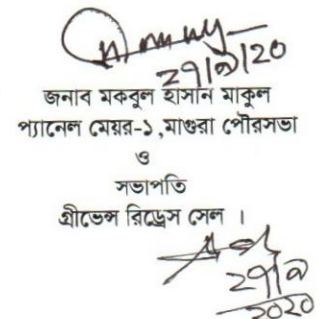 ২৭/৯/২০
জনাব মকবুল হাসান মাকুল
প্যানেল মেয়র-১,মাগুরা পৌরসভা
ও
সভাপতি
গ্রীভেন্স রিড্রেস সেল ।
২৭/৯
২০২০